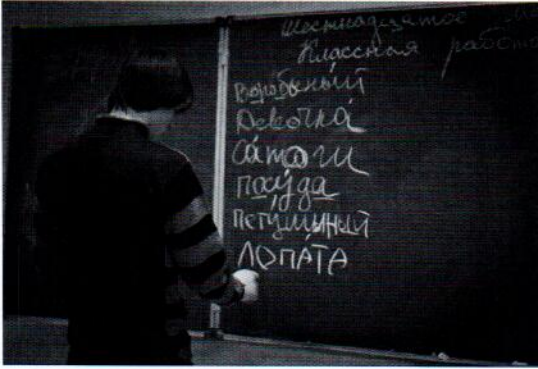 Шестнадцатое ма
Классная работа
Воробьиный
Девочка́
са́поги
посу́да
петушы́ный
ЛОПА́ТА